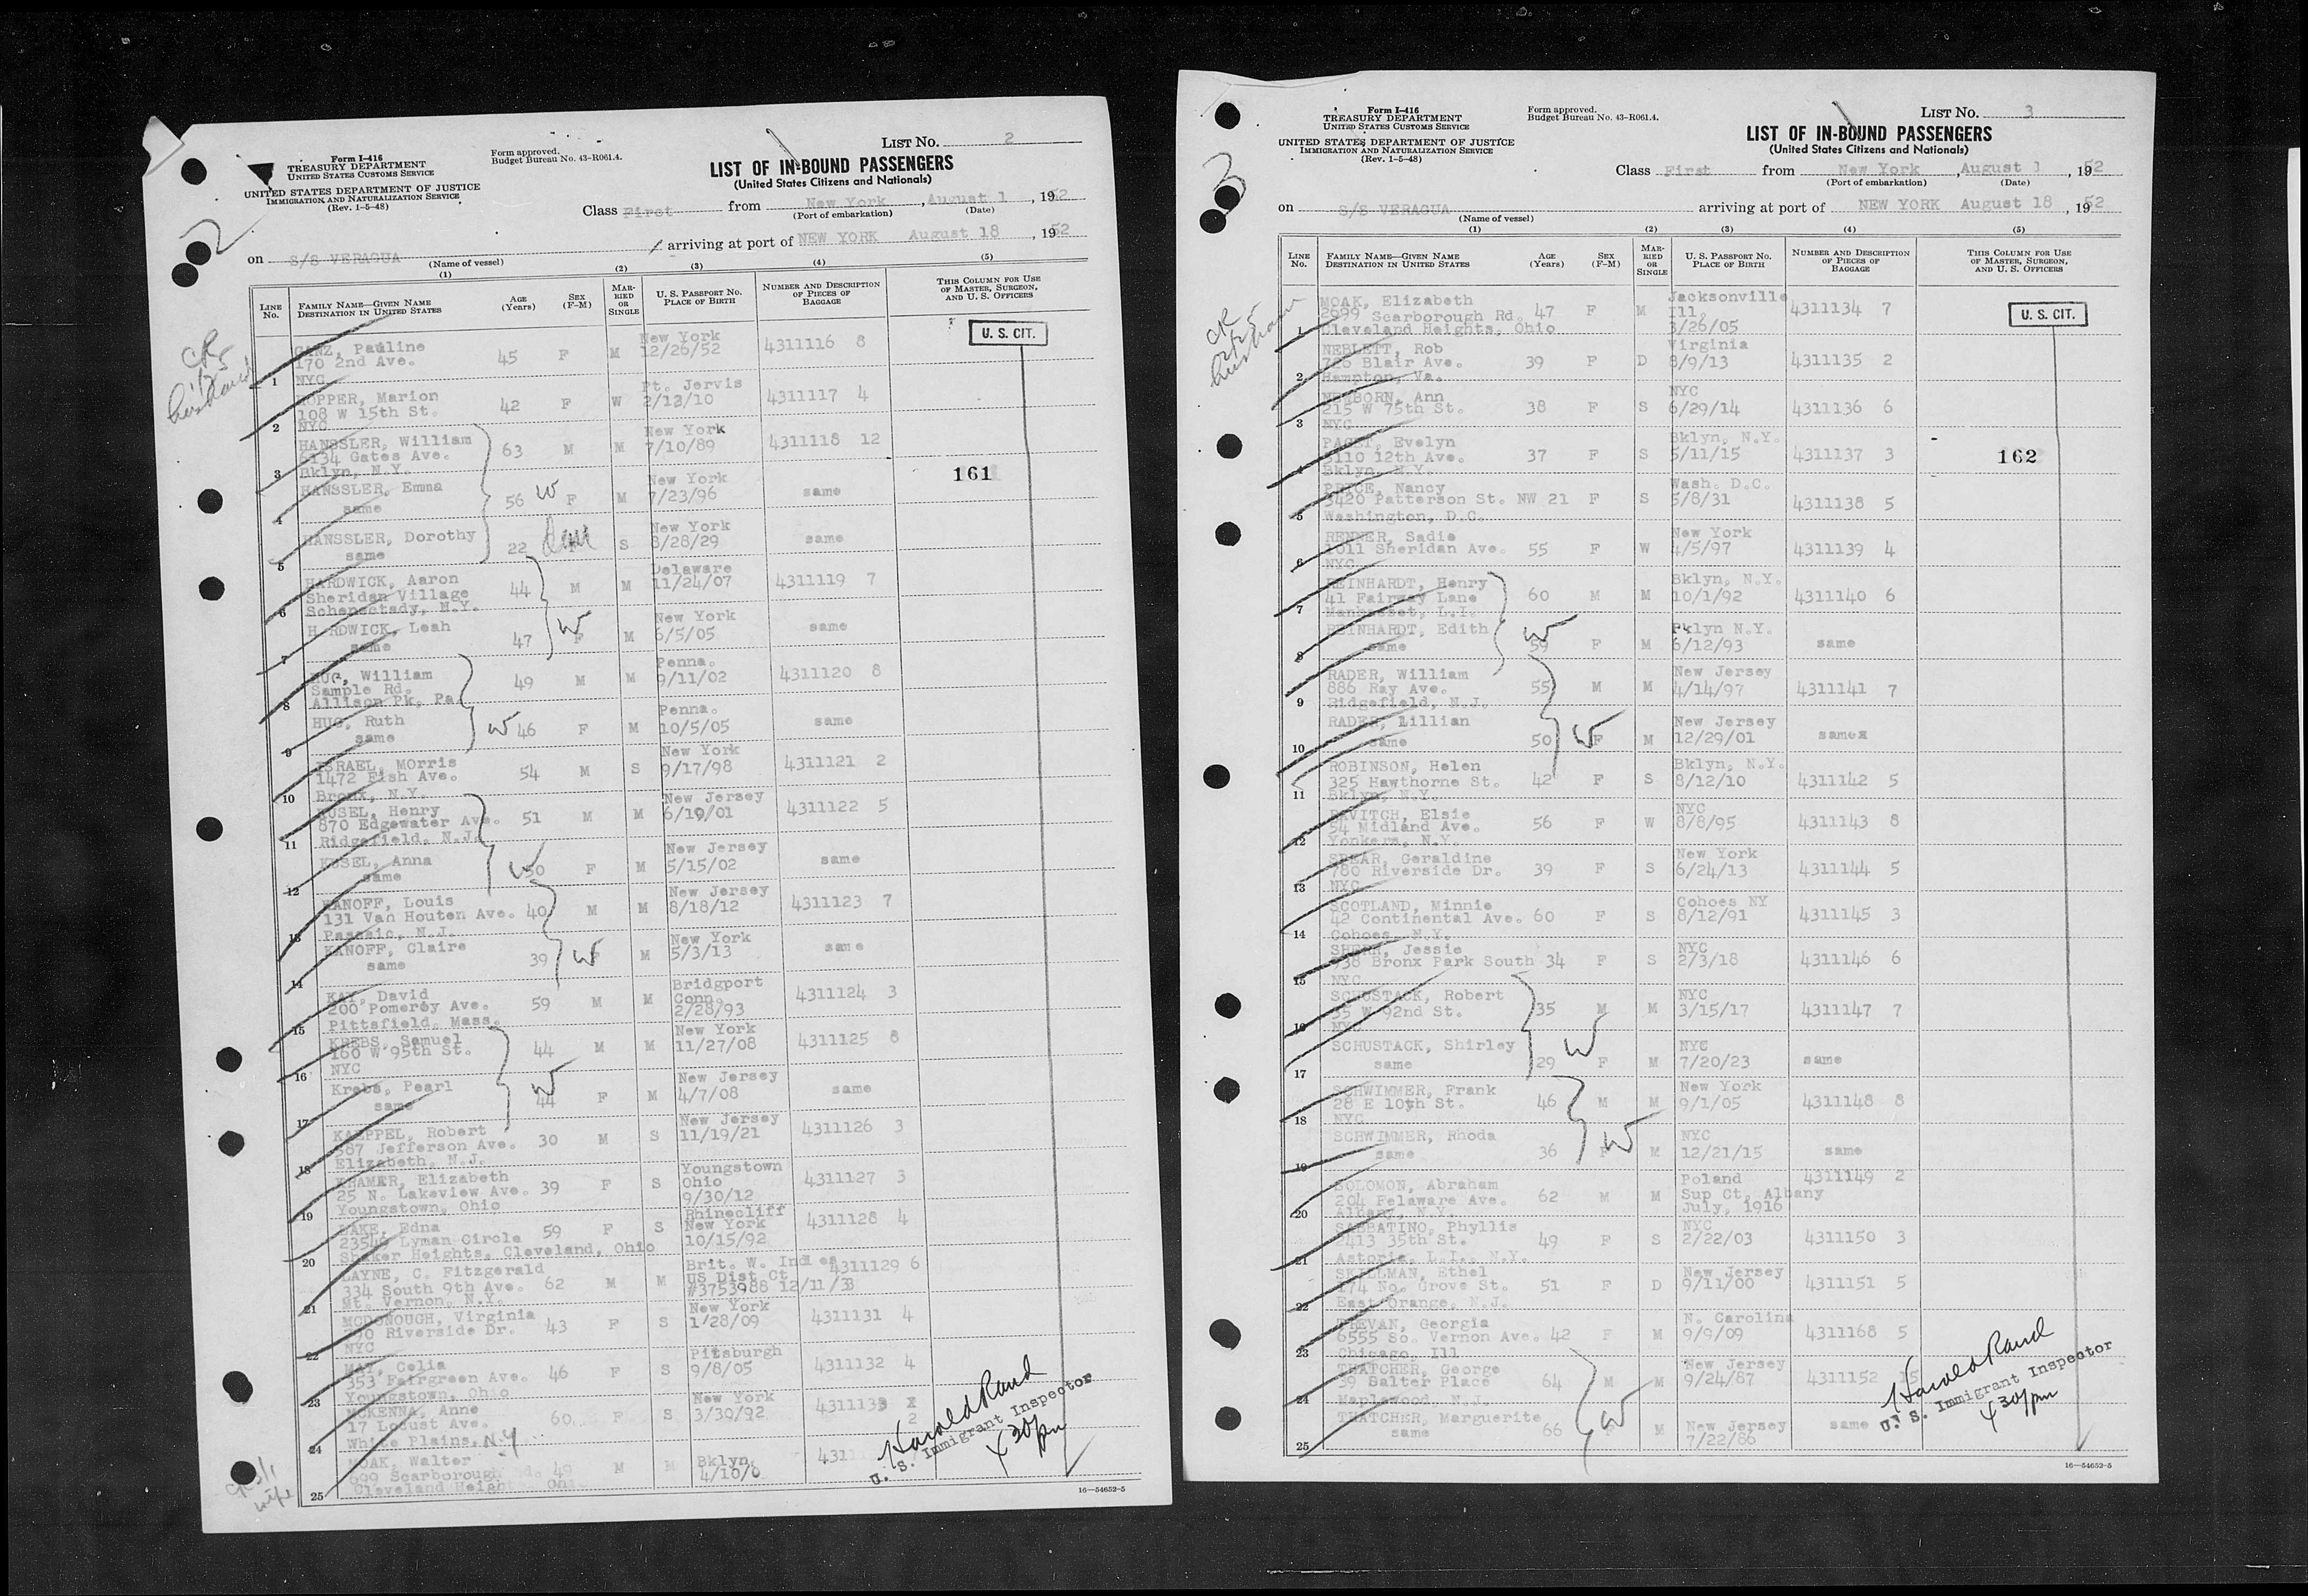 Form I-416
TREASURY DEPARTMENT
UNITED STATES CUSTOMS SERVICE
UNITED STATES DEPARTMENT OF JUSTICE
IMMIGRATION AND NATURALIZATION SERVICE
(Rev. 1-5-48)
Form approved.
Budget Bureau No. 43-R061.4.
LIST NO. 2
LIST OF IN-BOUND PASSENGERS
(United States Citizens and Nationals)
2
Class First from New York, August 1, 1952
(Port of embarkation) (Date)
on S/S VERAGUA arriving at port of NEW YORK August 18, 1952
(Name of vessel)
(1) (2) (3) (4) (5)
LINE No. FAMILY NAME—GIVEN NAME DESTINATION IN UNITED STATES AGE (Years) SEX (F-M) MARRIED OR SINGLE U. S. PASSPORT NO. PLACE OF BIRTH NUMBER AND DESCRIPTION OF PIECES OF BAGGAGE THIS COLUMN FOR USE OF MASTER, SURGEON, AND U. S. OFFICERS
U. S. CIT.
161
husband
1 GANZ, Pauline 45 F M New York 12/26/52 4311116 8
170 2nd Ave.
NYC
2 HOPPER, Marion 42 F W Pt. Jervis 2/12/10 4311117 4
108 W 15th St.
NYC
3 HANSSLER, William 63 M M New York 7/10/89 4311118 12
6134 Gates Ave.
Bklyn, N.Y.
4 HANSSLER, Emma 56 W F M New York 7/23/96 same
same
5 HANSSLER, Dorothy 22 dau S New York 8/28/29 same
same
6 HARDWICK, Aaron 44 M M Delaware 11/24/07 4311119 7
Sheridan Village
Schenectady, N.Y.
7 HARDWICK, Leah 47 W F M New York 6/5/05 same
same
8 HUG, William 49 M M Penna. 9/11/02 4311120 8
Sample Rd.
Allison Pk, Pa
9 HUG, Ruth W 46 F M Penna. 10/5/05 same
same
10 ISRAEL, Morris 54 M S New York 9/17/98 4311121 2
1472 Fish Ave.
Bronx, N.Y.
11 KUSEL, Henry 51 M M New Jersey 6/19/01 4311122 5
870 Edgewater Ave.
Ridgefield, N.J.
12 KUSEL, Anna W 50 F M New Jersey 5/15/02 same
same
13 KANOFF, Louis 40 M M New Jersey 8/18/12 4311123 7
131 Van Houten Ave.
Passaic, N.J.
14 KANOFF, Claire 39 W F M New York 5/3/13 same
same
15 KAY, David 59 M M Bridgport Conn. 2/28/93 4311124 3
200 Pomeroy Ave.
Pittsfield, Mass.
16 KREBS, Samuel 44 M M New York 11/27/08 4311125 8
160 W 95th St.
NYC
17 Krebs, Pearl W 44 F M New Jersey 4/7/08 same
same
18 KAEPPEL, Robert 30 M S New Jersey 11/19/21 4311126 3
587 Jefferson Ave.
Elizabeth, N.J.
19 KRAMER, Elizabeth 39 F S Youngstown Ohio 9/30/12 4311127 3
25 N. Lakeview Ave.
Youngstown, Ohio
20 LAKE, Edna 59 F S Rhinecliff New York 10/15/92 4311128 4
23546 Lyman Circle
Shaker Heights, Cleveland, Ohio
21 LAYNE, C. Fitzgerald 62 M M Brit. W. Indies US Dist Ct. #3753988 12/11/33 4311129 6
334 South 9th Ave.
Mt. Vernon, N.Y.
22 MCDONOUGH, Virginia 43 F S New York 1/28/09 4311131 4
Riverside Dr.
NYC
23 MAY, Celia 46 F S Pittsburgh 9/8/05 4311132 4
353 Fairgreen Ave.
Youngstown, Ohio
24 MCKENNA, Anne 60 F S New York 3/30/92 4311133 2
17 Locust Ave.
White Plains, N.Y
25 MOAK, Walter 49 M M Bklyn. 4/10/0 431
Scarborough
Cleveland Height Ohi
wife
Harold Rand
U. S. Immigrant Inspector
430pm
16—54652-5
Form I-416
TREASURY DEPARTMENT
UNITED STATES CUSTOMS SERVICE
UNITED STATES DEPARTMENT OF JUSTICE
IMMIGRATION AND NATURALIZATION SERVICE
(Rev. 1-5-48)
Form approved.
Budget Bureau No. 43-R061.4.
LIST NO. 3
LIST OF IN-BOUND PASSENGERS
(United States Citizens and Nationals)
3
Class First from New York, August 1, 1952
(Port of embarkation) (Date)
on S/S VERAGUA arriving at port of NEW YORK August 18, 1952
(Name of vessel)
(1) (2) (3) (4) (5)
LINE No. FAMILY NAME—GIVEN NAME DESTINATION IN UNITED STATES AGE (Years) SEX (F-M) MARRIED OR SINGLE U. S. PASSPORT NO. PLACE OF BIRTH NUMBER AND DESCRIPTION OF PIECES OF BAGGAGE THIS COLUMN FOR USE OF MASTER, SURGEON, AND U. S. OFFICERS
U. S. CIT.
162
husband
1 MOAK, Elizabeth 47 F M Jacksonville Ill, 3/26/05 4311134 7
2699 Scarborough Rd.
Cleveland Heights, Ohio
2 NEBLETT, Rob 39 F D Virginia 8/9/13 4311135 2
Blair Ave.
Hampton, Va.
3 NEWBORN, Ann 38 F S NYC 6/29/14 4311136 6
215 W 75th St.
NYC
4 PAGET, Evelyn 37 F S Bklyn, N.Y. 5/11/15 4311137 3
5110 12th Ave.
Bklyn, N.Y.
5 PRICE, Nancy 21 F S Wash. D.C. 5/8/31 4311138 5
3420 Patterson St. NW
Washington, D.C.
6 RENNER, Sadie 55 F W New York 4/5/97 4311139 4
1011 Sheridan Ave.
NYC
7 REINHARDT, Henry 60 M M Bklyn, N.Y. 10/1/92 4311140 6
41 Fairway Lane
Manhasset, L.I.
8 REINHARDT, Edith W 59 F M Bklyn N.Y. 6/12/93 same
same
9 RADER, William 55 M M New Jersey 4/14/97 4311141 7
886 Ray Ave.
Ridgefield, N.J.
10 RADER, Lillian 50 W F M New Jersey 12/29/01 same
same
11 ROBINSON, Helen 42 F S Bklyn, N.Y. 8/12/10 4311142 5
325 Hawthorne St.
Bklyn, N.Y.
12 RAVITCH, Elsie 56 F W NYC 8/8/95 4311143 8
54 Midland Ave.
Yonkers, N.Y.
13 SPEAR, Geraldine 39 F S New York 6/24/13 4311144 5
780 Riverside Dr.
NYC
14 SCOTLAND, Minnie 60 F S Cohoes NY 8/12/91 4311145 3
42 Continental Ave.
Cohoes, N.Y.
15 SHERR, Jessie 34 F S NYC 2/3/18 4311146 6
Bronx Park South
NYC
16 SCHUSTACK, Robert 35 M M NYC 3/15/17 4311147 7
35 W 92nd St.
NYC
17 SCHUSTACK, Shirley 29 W F M NYC 7/20/23 same
same
18 SCHWIMMER, Frank 46 M M New York 9/1/05 4311148 8
28 E 10th St.
NYC
19 SCHWIMMER, Rhoda 36 W F M NYC 12/21/15 same
same
20 SOLOMON, Abraham 62 M M Poland Sup Ct, Albany July, 1916 4311149 2
204 Felaware Ave.
Albany, N.Y.
21 SABBATINO, Phyllis 49 F S NYC 2/22/03 4311150 3
35th St.
Astoria, L.I., N.Y.
22 SKILLMAN, Ethel 51 F D New Jersey 9/11/00 4311151 5
174 No. Grove St.
East Orange, N.J.
23 TREVAN, Georgia 42 F M N. Carolina 9/9/09 4311168 5
6555 So. Vernon Ave.
Chicago, Ill
24 THATCHER, George 64 M M New Jersey 9/24/87 4311152 15
39 Salter Place
Maplewood, N.J.
25 THATCHER, Marguerite 66 W F M New Jersey 7/22/86 same
same
Harold Rand
U. S. Immigrant Inspector
430pm
16—54652-5